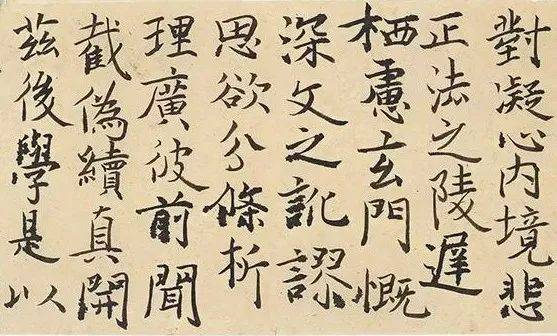 對凝心內境悲
正法之陵遲
栖慮玄門慨
深文之訛謬
思欲分條析
理廣彼前聞
截偽續真開
茲後學是以